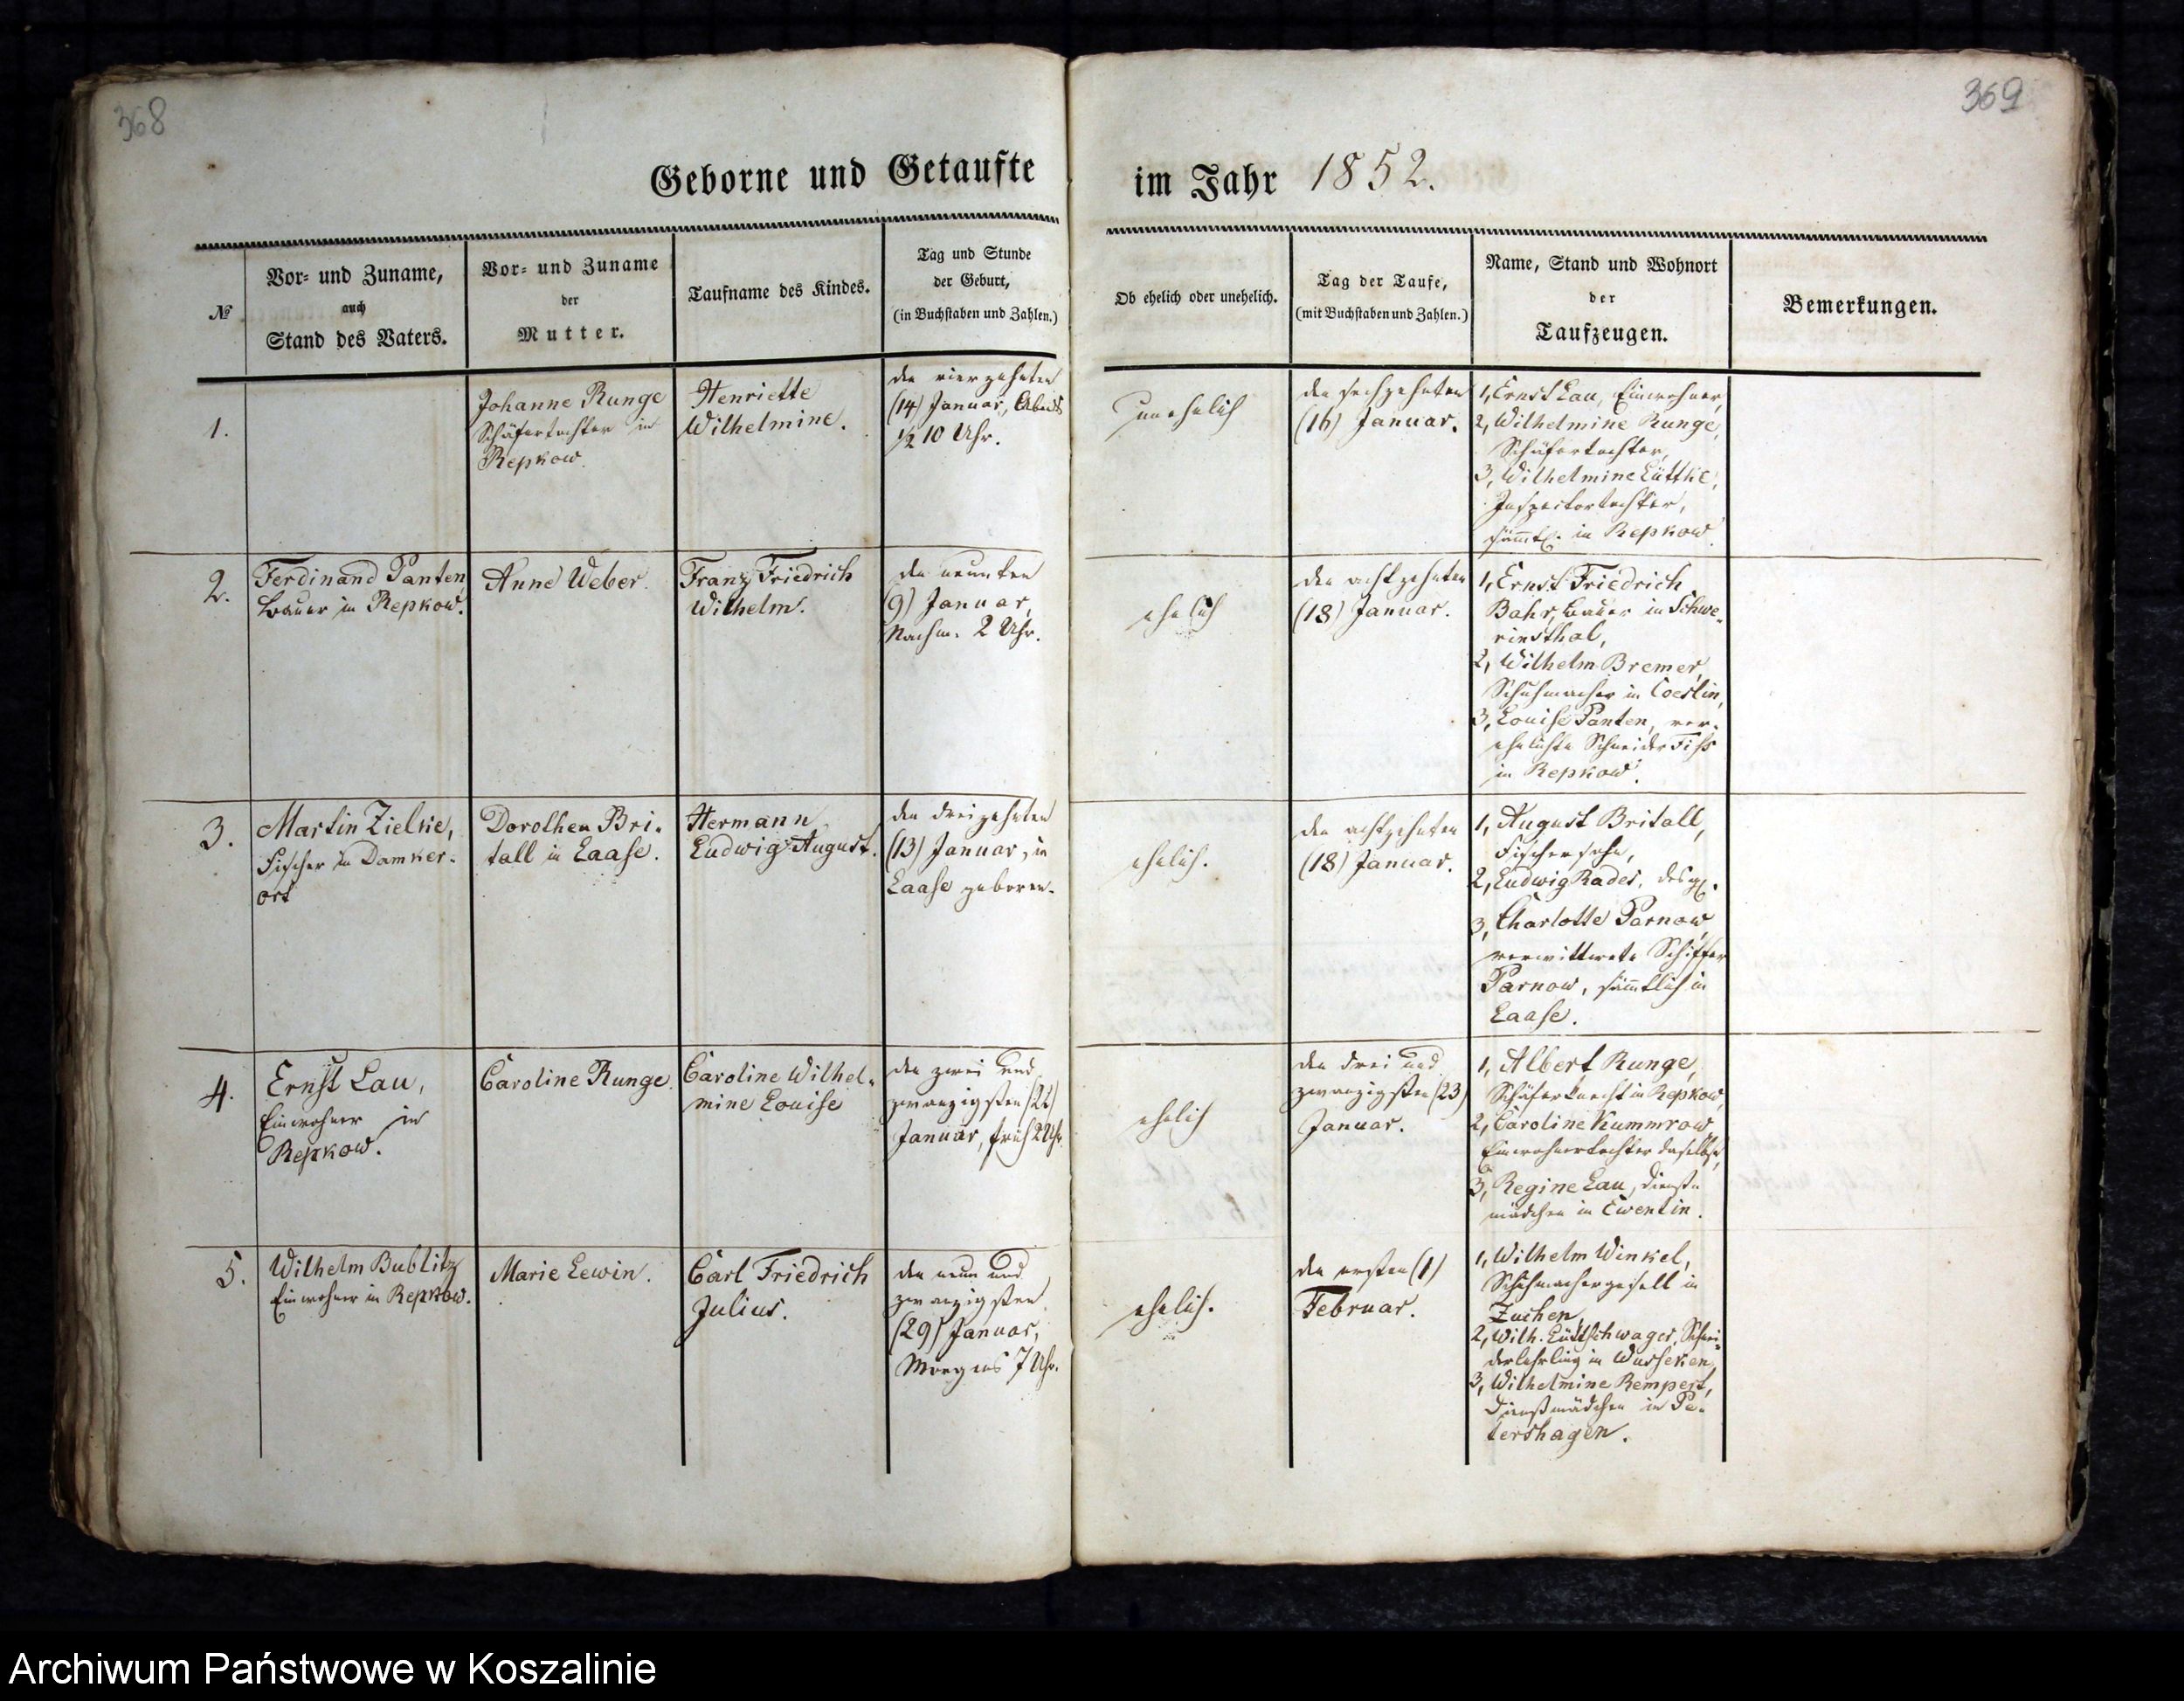 368
Geborne und Getaufte
№
Vor- und Zuname,
auch
Stand des Vaters.
Vor- und Zuname
der
Mutter.
Taufname des Kindes.
Tag und Stunde
der Geburt,
(in Buchstaben und Zahlen.)
1.
Johanne Runge
Schäfertochter in
Repkow.
Henriette
Wilhelmine.
den vierzehnten
(14) Januar, Abends
½ 10 Uhr.
2.
Ferdinand Panten,
Bauer in Repkow.
Anne Weber.
Franz Friedrich
Wilhelm.
den neunten
(9) Januar,
Nachm. 2 Uhr.
3.
Martin Zielke,
Fischer in Damker-
ort
Dorothea Bri-
tall in Laase.
Hermann
Ludwig August.
den dreizehnten
(13) Januar, in
Laase geboren.
4.
Ernst Lau,
Einwohner in
Repkow.
Caroline Runge.
Caroline Wilhel-
mine Louise
den zwei und
zwanzigsten (22)
Januar, früh 2 Uhr.
5.
Wilhelm Bublitz
Einwohner in Repkow.
Marie Lewin.
Carl Friedrich
Julius.
den neun und
zwanzigsten
(29) Januar,
Morgens 7 Uhr.
369
im Jahr 1852.
Ob ehelich oder unehelich.
Tag der Taufe,
(mit Buchstaben und Zahlen.)
Name, Stand und Wohnort
der
Taufzeugen.
Bemerkungen.
unehelich
den sechzehnten
(16) Januar.
1, Ernst Lau, Einwohner,
2, Wilhelmine Runge,
Schäfertochter,
3, Wilhelmine Lüttke,
Inspectortochter,
sämtl. in Repkow.
ehelich
den achtzehnten
(18) Januar.
1, Ernst Friedrich
Bahr, Bauer in Schwe-
rinsthal,
2, Wilhelm Bremer,
Schuhmacher in Coeslin,
3, Louise Panten, ver-
ehelichte Schneider Fiss
in Repkow.
ehelich.
den achtzehnten
(18) Januar.
1, August Britall,
Fischersohn,
2, Ludwig Rades, desgl.
3, Charlotte Parnow,
verwittwete Schiffer
Parnow, sämtlich in
Laase.
ehelich
den drei und
zwanzigsten (23)
Januar.
1, Albert Runge,
Schäferknecht in Repkow,
2, Caroline Kummrow
Einwohnertochter daselbst,
3, Regine Lau, Dienst-
mädchen in Ewentin.
ehelich.
den ersten (1)
Februar.
1, Wilhelm Winkel,
Schuhmachergesell in
Zuchen,
2, Wilh. Lüttschwager, Schnei-
derlehrling in Wusseken,
3, Wilhelmine Rempert,
Dienstmädchen in Pe-
tershagen.
Archiwum Państwowe w Koszalinie